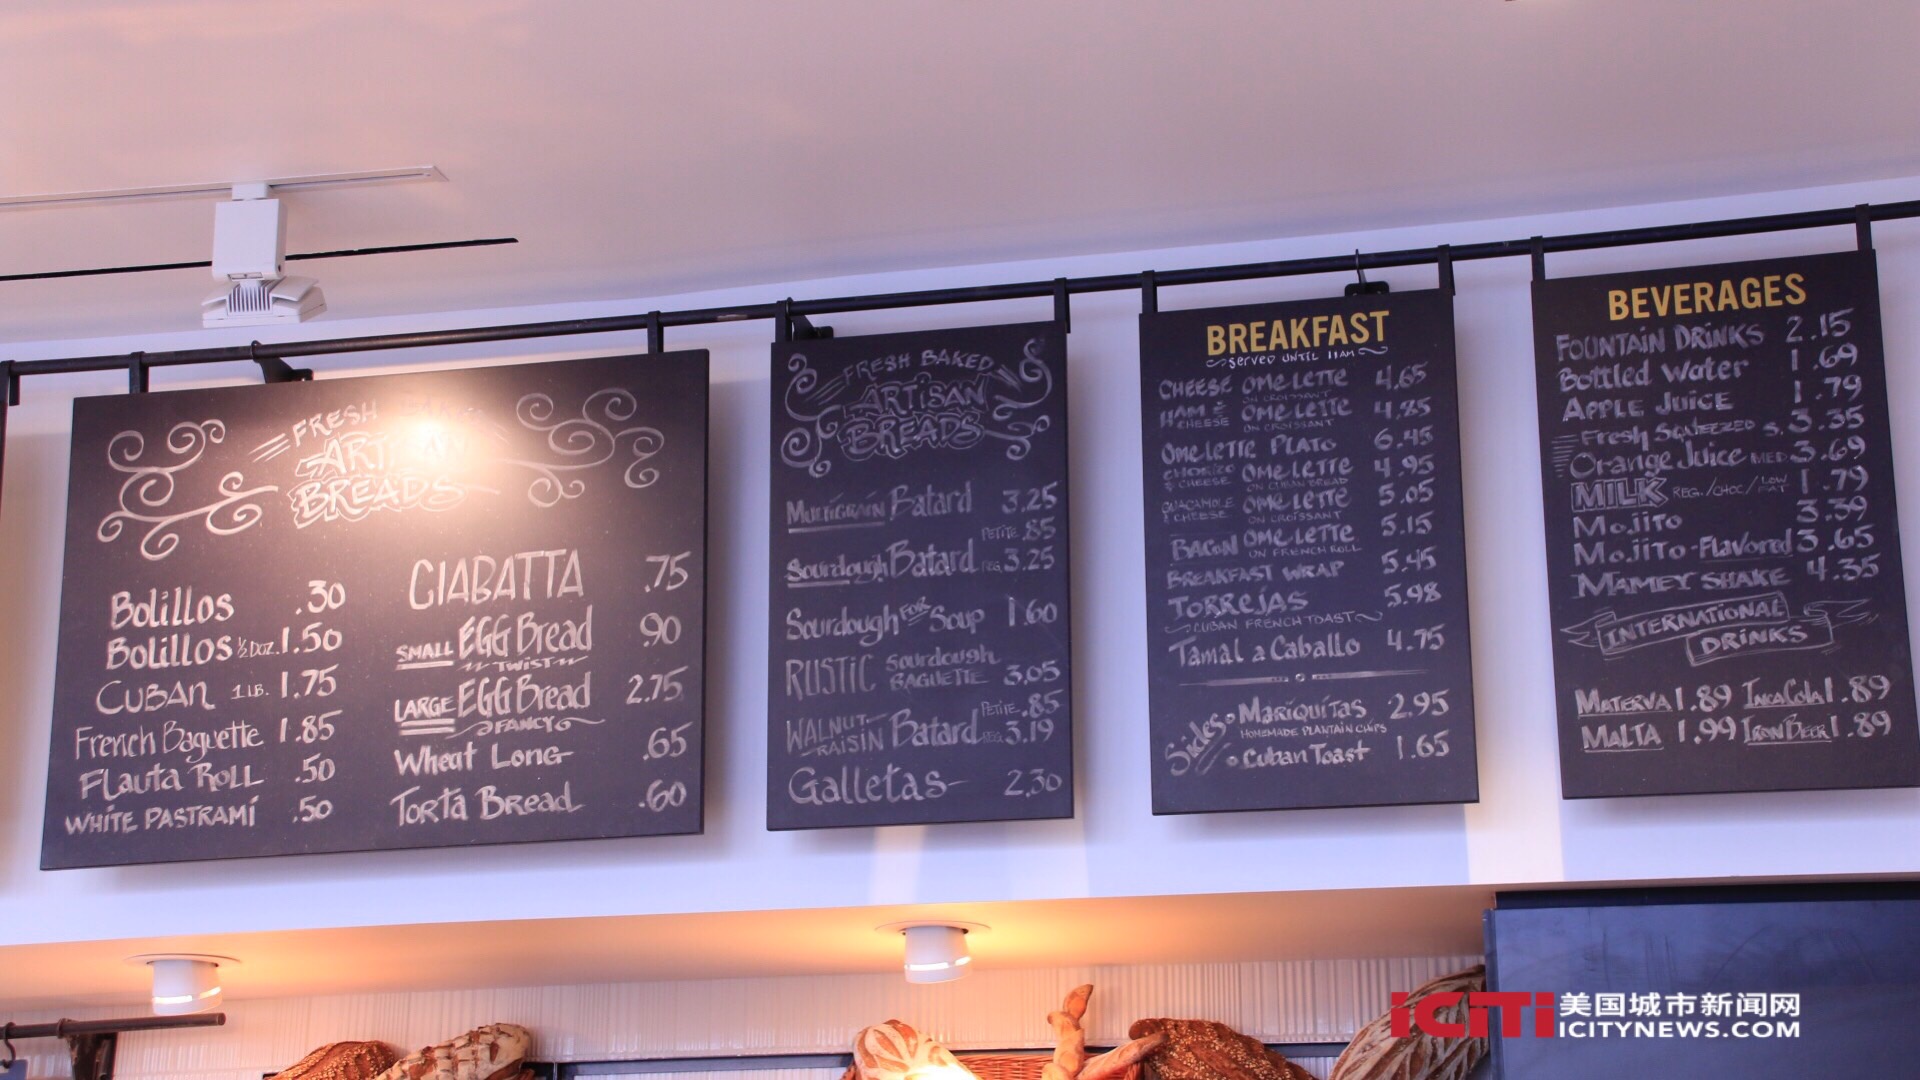 FRESH BAKED
ARTISAN
BREADS
Bolillos .30
Bolillos ½ Doz. 1.50
CUBAN 1 LB. 1.75
French Baguette 1.85
Flauta ROLL .50
WHITE PASTRAMI .50
CIABATTA .75
SMALL EGG Bread .90
TWIST
LARGE EGG Bread 2.75
FANCY
Wheat Long .65
TORTA Bread .60
FRESH BAKED
ARTISAN
BREADS
MULTIGRAIN Batard 3.25
PETITE .85
Sourdough Batard REG. 3.25
Sourdough FOR Soup 1.60
RUSTIC Sourdough BAGUETTE 3.05
PETITE .85
WALNUT-RAISIN Batard REG. 3.19
Galletas 2.30
BREAKFAST
Served UNTIL 11AM
CHEESE OMELETTE 4.65
ON CROISSANT
HAM & CHEESE OMELETTE 4.85
ON CROISSANT
OMELETTE PLATO 6.45
CHORIZO & CHEESE OMELETTE 4.95
ON CUBAN BREAD
GUACAMOLE & CHEESE OMELETTE 5.05
ON CROISSANT
BACON OMELETTE 5.15
ON FRENCH ROLL
BREAKFAST WRAP 5.45
TORREJAS 5.98
CUBAN FRENCH TOAST
Tamal a Caballo 4.75
Sides
Mariquitas 2.95
HOMEMADE PLANTAIN CHIPS
Cuban Toast 1.65
BEVERAGES
FOUNTAIN DRINKS 2.15
Bottled Water 1.69
APPLE JUICE 1.79
Fresh SQUEEZED S. 3.35
Orange Juice MED. 3.69
MILK REG./CHOC/LOW FAT 1.79
Mojito 3.39
Mojito-Flavored 3.65
MAMEY SHAKE 4.35
INTERNATIONAL
DRINKS
MATERVA 1.89 INCA COLA 1.89
MALTA 1.99 IRON BEER 1.89
iCiTi 美国城市新闻网
ICITYNEWS.COM